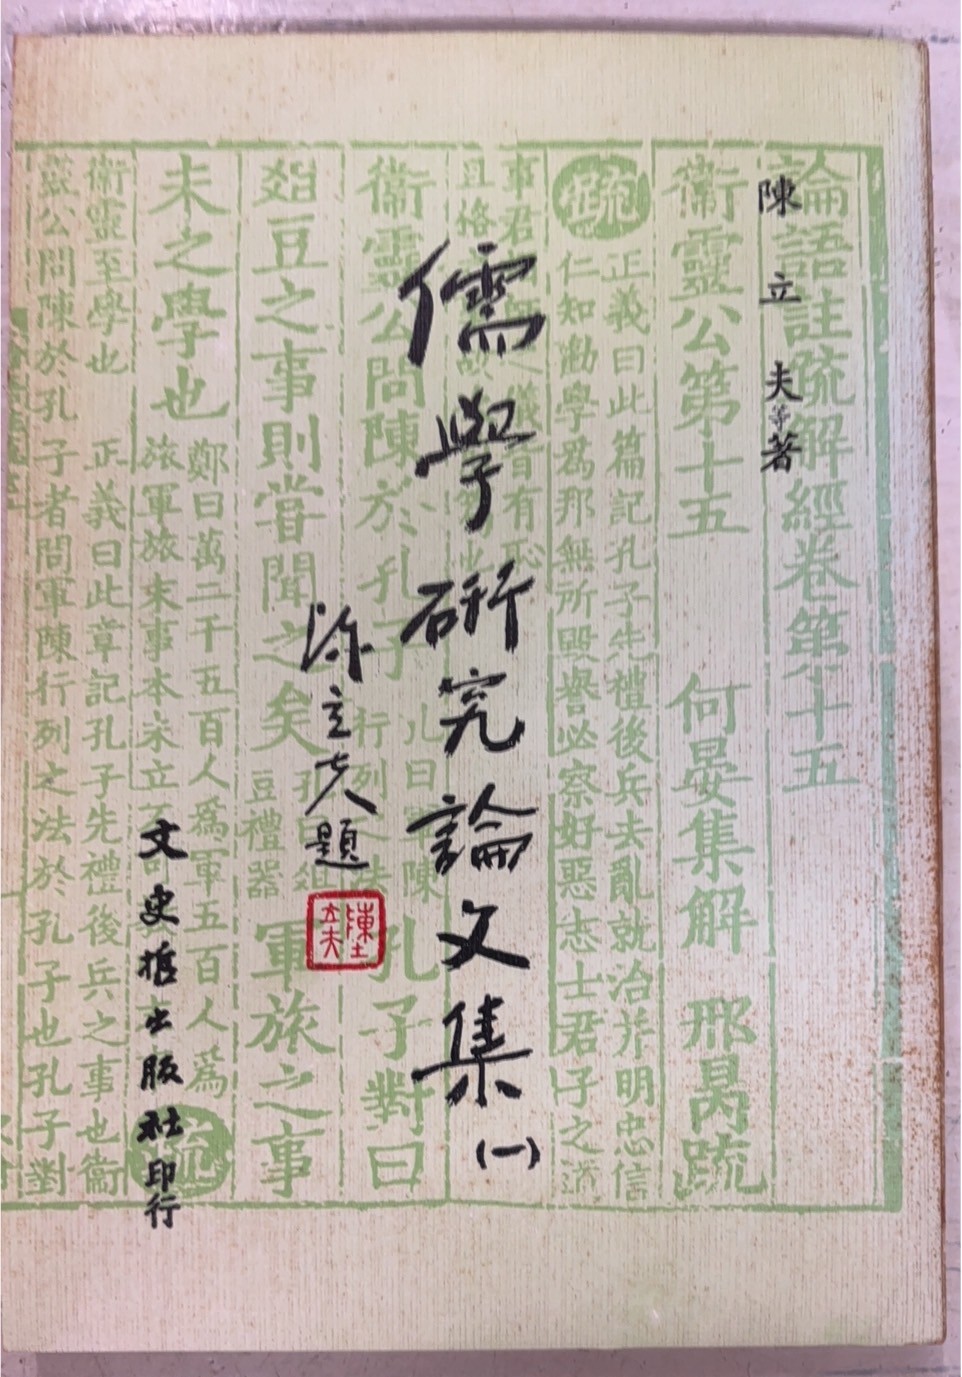 陳立夫等著
儒學研究論文集
(一)
陳立夫題
陳立夫
文史哲出版社印行
論語註疏解經卷第十五
衞靈公第十五
何晏集解
邢昺疏
疏
正義曰此篇記孔子先禮後兵去亂就治并明忠信
仁知勸學爲邦無所毀譽必察好惡志士君子之道
事君
有恥
且格
衞靈公問陳於孔子
孔子對曰
俎豆之事則嘗聞之矣
豆禮器
軍旅之事
未之學也
鄭曰萬二千五百人爲軍五百人爲
旅軍旅末事本未立
疏
衞靈至學也
正義曰此章記孔子先禮後兵之事也衞
靈公問陳於孔子者問軍陳行列之法於孔子也孔子對